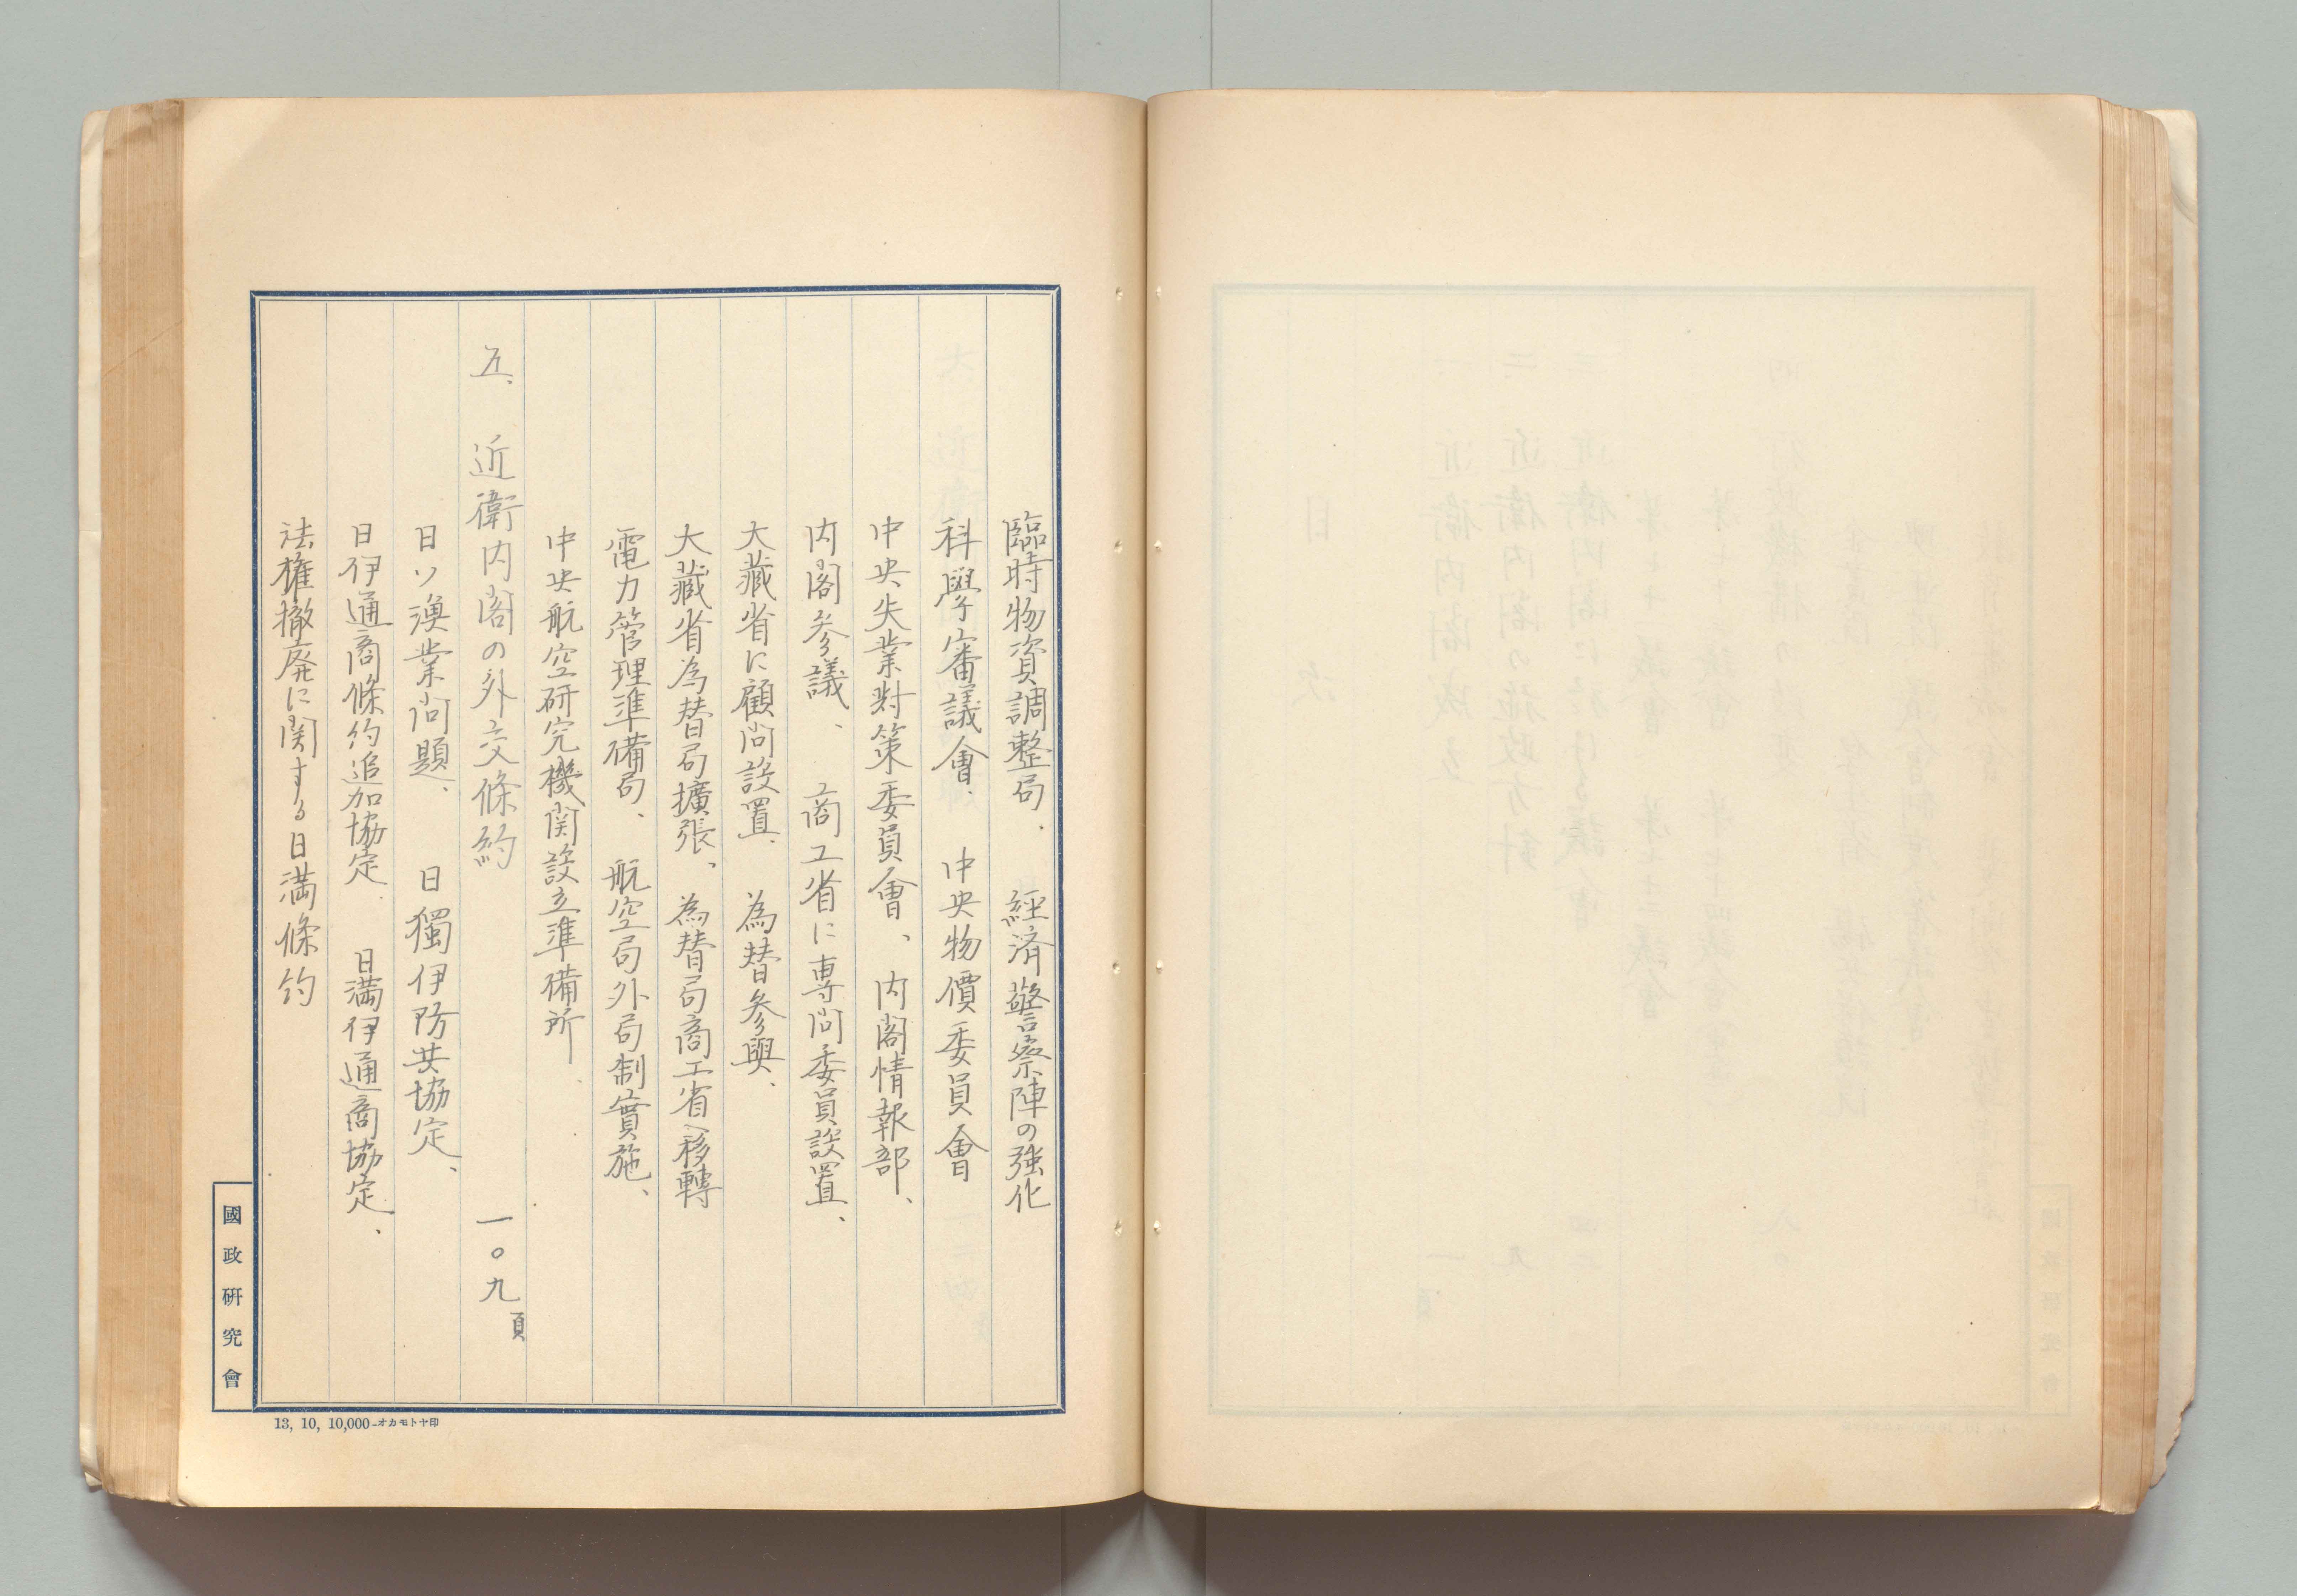 臨時物資調整局、　経済警察陣の強化
科學審議會、　中央物價委員會
中央失業対策委員會、　内閣情報部、
内閣参議、　商工省に専問委員設置、
大藏省に顧問設置、　為替参與、
大藏省為替局擴張、　為替局商工省へ移轉
電力管理準備局、　航空局外局制實施、
中央航空研究機関設立準備所、
五、近衛内閣の外交條約　一〇九頁
日ソ漁業問題、　日獨伊防共協定、
日伊通商條約追加協定、　日満伊通商協定、
法権撤廃に関する日満條約
國政研究會
13, 10, 10,000-オカモトヤ印